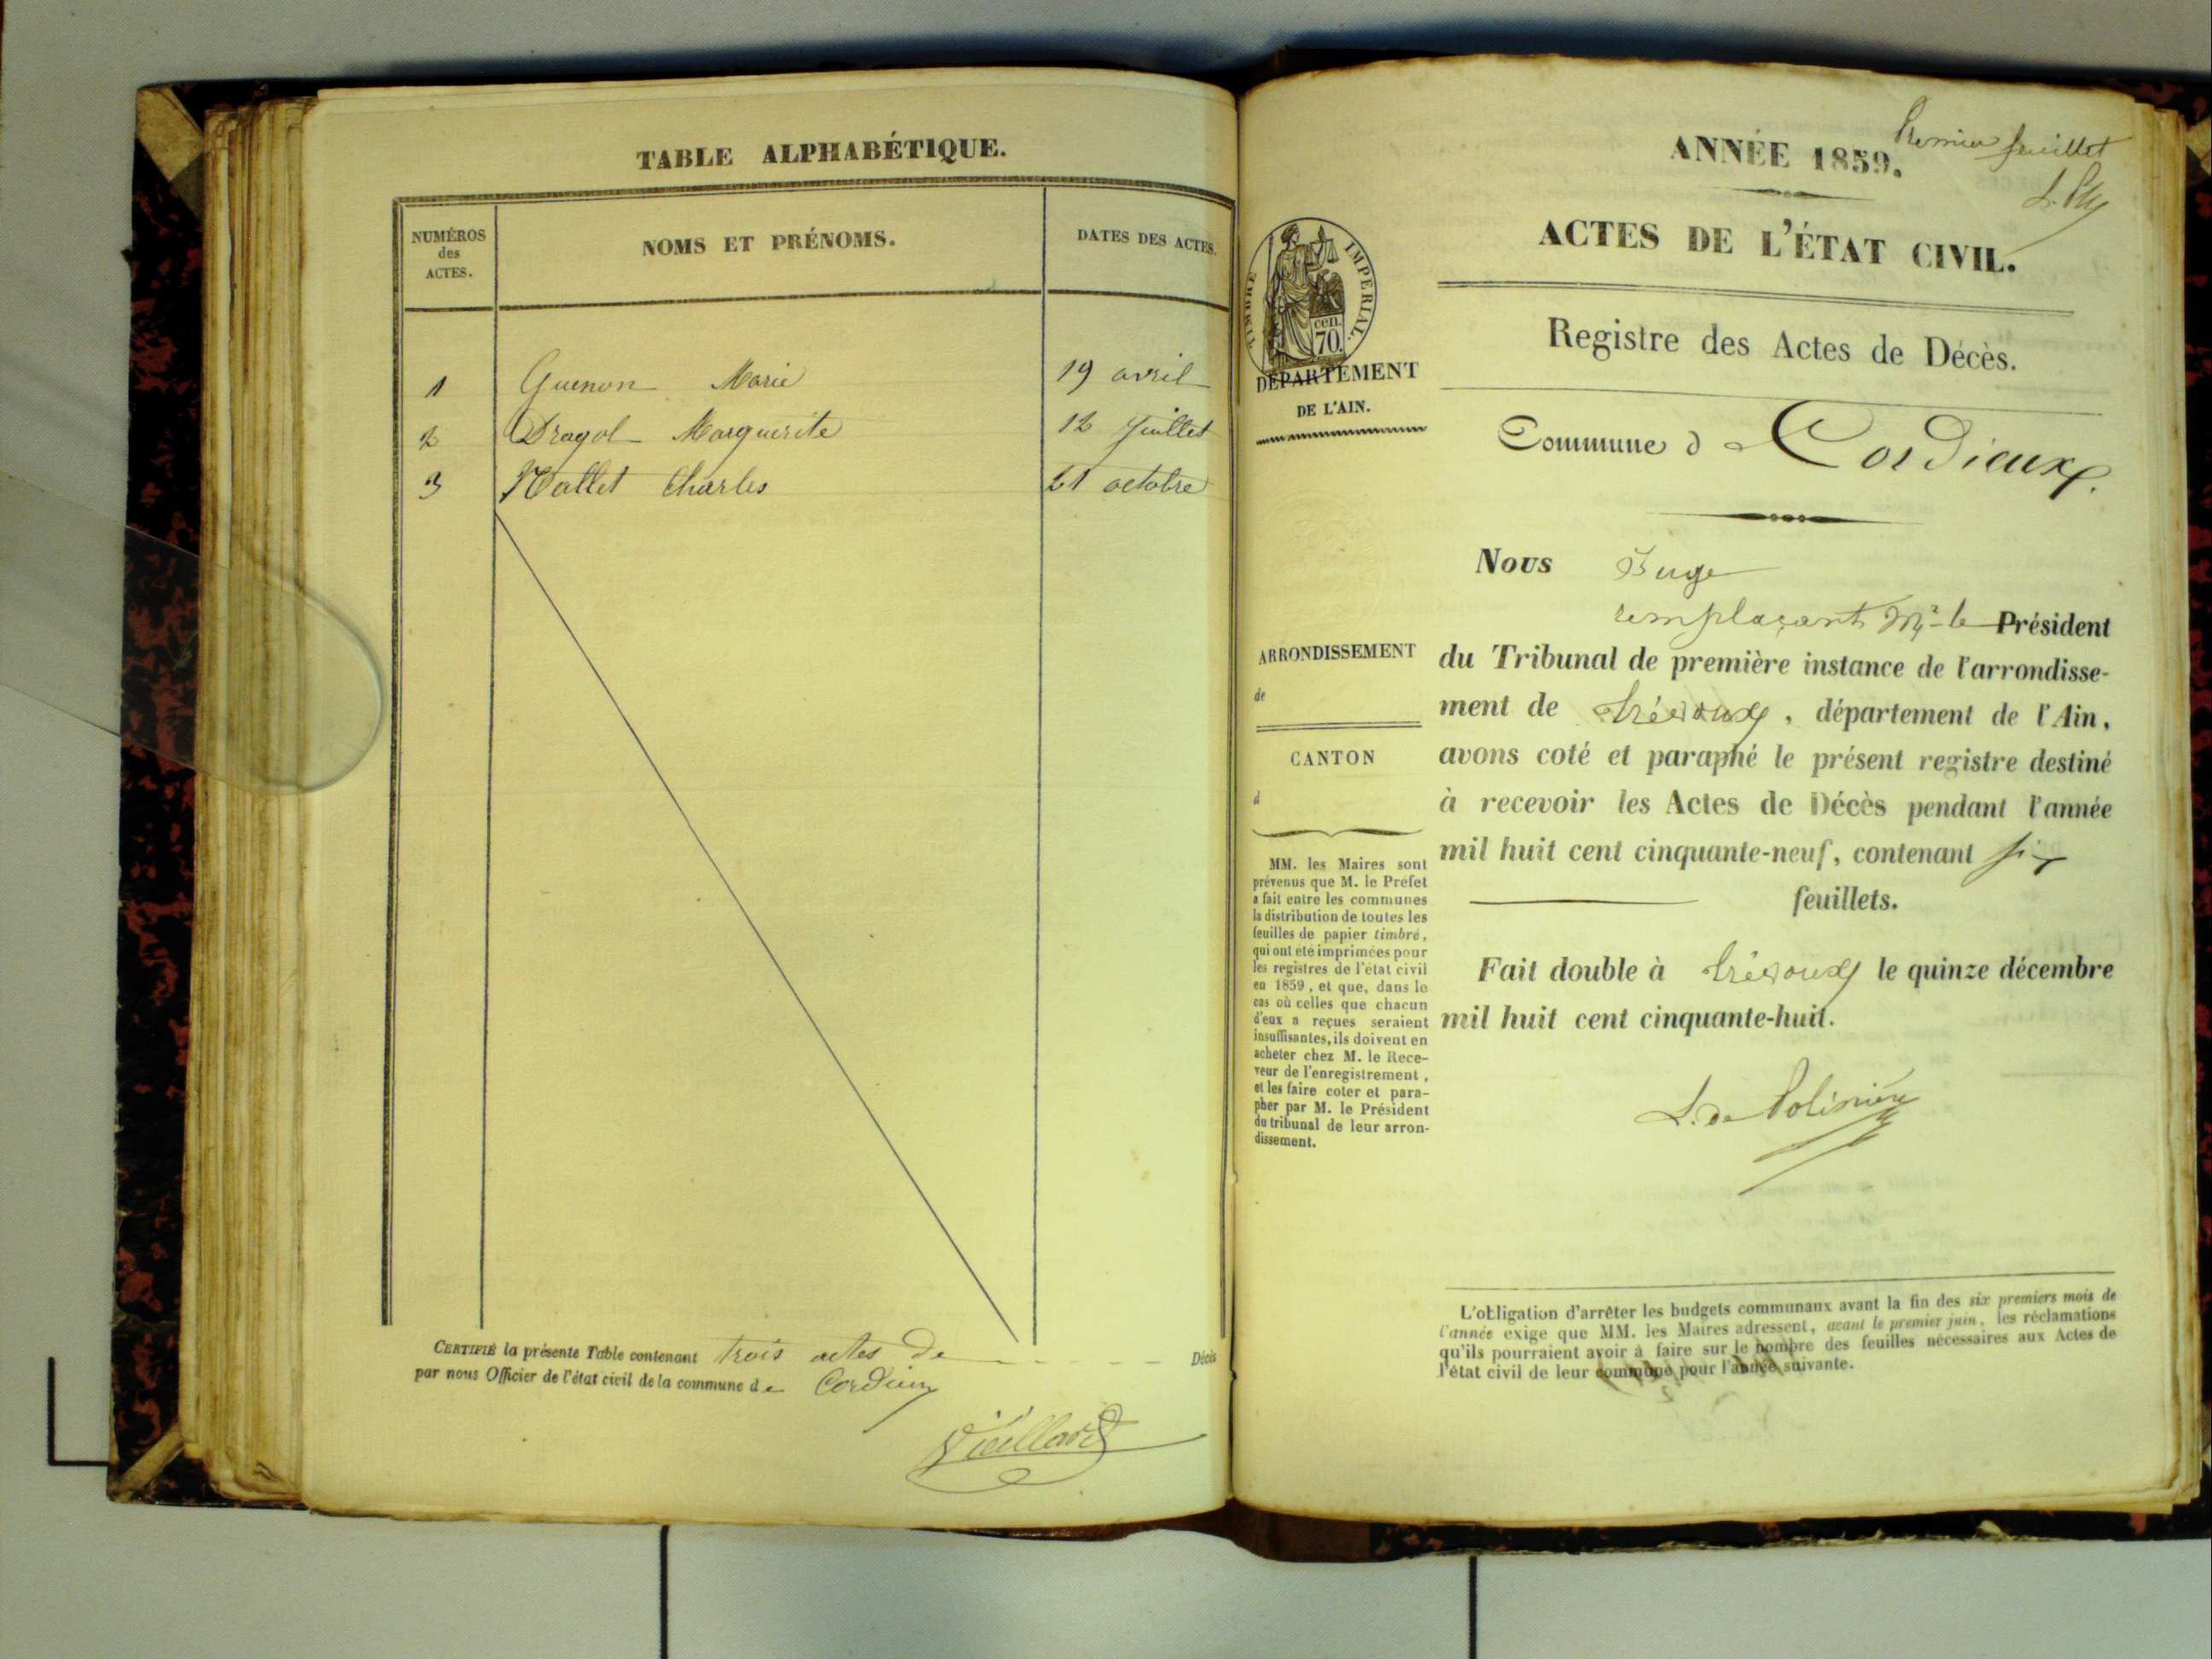 TABLE ALPHABÉTIQUE.
NUMÉROS
des
ACTES.
NOMS ET PRÉNOMS.
DATES DES ACTES.
1 Guenon Marie 19 avril
2 Dragol Marguerite 12 juillet
3 Vallet Charles 21 octobre
CERTIFIÉ la présente Table contenant trois actes de Décès
par nous Officier de l'état civil de la commune de Cordieux
Vieillard
Premier feuillet
ANNÉE 1859.
ACTES DE L'ÉTAT CIVIL.
TIMBRE IMPERIAL
70 cen.
Registre des Actes de Décès.
DÉPARTEMENT
DE L'AIN.
Commune d Cordieux.
Nous Juge
remplaçant Mr le Président
ARRONDISSEMENT
de
CANTON
d
du Tribunal de première instance de l'arrondisse-
ment de Trévoux, département de l'Ain,
avons coté et paraphé le présent registre destiné
à recevoir les Actes de Décès pendant l'année
mil huit cent cinquante-neuf, contenant six
feuillets.
Fait double à Trévoux le quinze décembre
mil huit cent cinquante-huit.
L. de Polinière
MM. les Maires sont
prévenus que M. le Préfet
a fait entre les communes
la distribution de toutes les
feuilles de papier timbré,
qui ont été imprimées pour
les registres de l'état civil
en 1859, et que, dans le
cas où celles que chacun
d'eux a reçues seraient
insuffisantes, ils doivent en
acheter chez M. le Rece-
veur de l'enregistrement,
et les faire coter et para-
pher par M. le Président
du tribunal de leur arron-
dissement.
L'obligation d'arrêter les budgets communaux avant la fin des six premiers mois de
l'année exige que MM. les Maires adressent, avant le premier juin, les réclamations
qu'ils pourraient avoir à faire sur le nombre des feuilles nécessaires aux Actes de
l'état civil de leur commune pour l'année suivante.